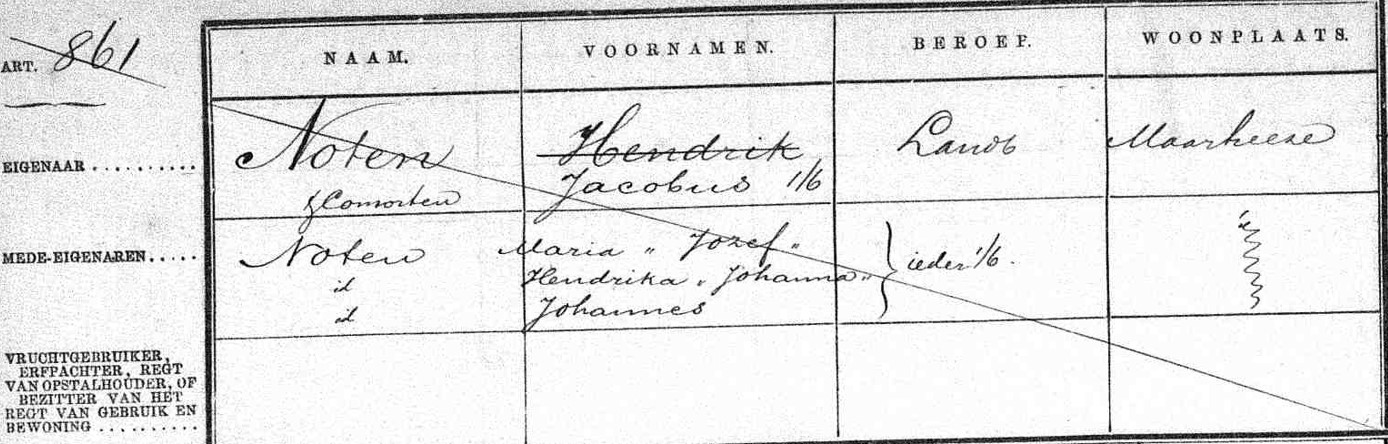 ART. 861
NAAM. VOORNAMEN. BEROEP. WOONPLAATS.
EIGENAAR .......... Noten Hendrik Landb Maarheeze
Jacobus 1/6
& Consorten
MEDE-EIGENAREN..... Noten Maria " Jozef " ieder 1/6.
id Hendrika " Johanna "
id Johannes
VRUCHTGEBRUIKER,
ERFPACHTER, REGT
VAN OPSTALHOUDER, OF
BEZITTER VAN HET
REGT VAN GEBRUIK EN
BEWONING ..........